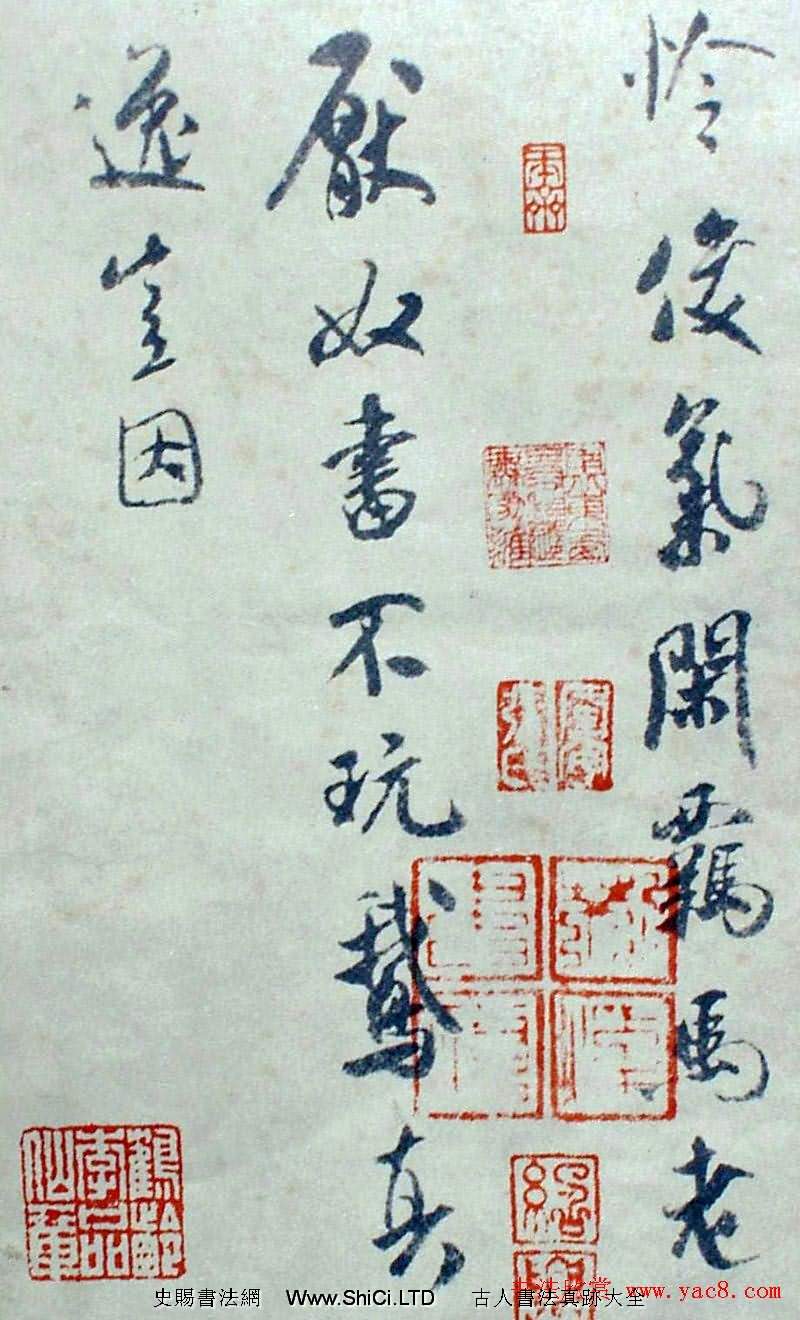 怜俊氣閑羈馬老
厭奴書不玩鵝真
逸豈因
史賜書法網 Www.ShiCi.LTD 古人書法真跡大全
书法欣赏 www.yac8.com